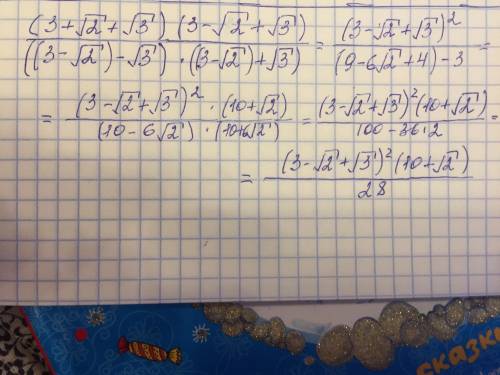 (3+√2+√3) (3-√2+√3) / ((3-√2)-√3)·(3-√2)+√3) = (3-√2+√3)² / (9-6√2+4)-3 =
= (3-√2+√3)²·(10+√2) / (10-6√2)·(10+6√2) = (3-√2+√3)²(10+√2) / 100-36·2 =
= (3-√2+√3)²(10+√2) / 28
сказк